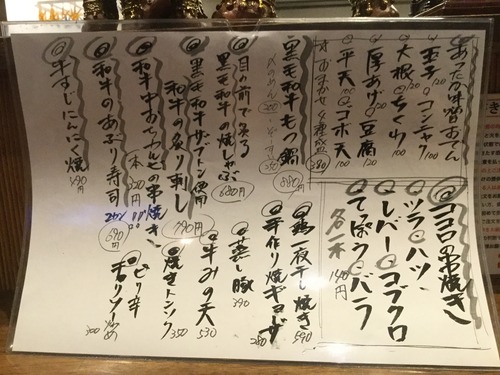 あったか味噌おでん
玉子 120 コンニャク 120
大根 120 ちくわ 100
厚あげ 120 豆腐 100
平天 100 ゴボ天 100
おまかせ4種盛 380
黒毛和牛もつ鍋 880円
〆のめん 200
目の前で炙る
黒毛和牛の焼しゃぶ 680円
黒毛和牛ザブトン使用
和牛の炙り刺し 790円
和牛中おちカルビの串焼き
一本 320円
和牛のあぶり寿司 2カン 690円
牛すじにんにく焼 490円
ココロの串焼き
ツラ ハツ
レバー コブクロ
てっぽう バラ
各一本 140円
鶏一夜干し焼き 590
手作り焼ギョーザ 280
蒸し豚 390
牛みの天 530
焼きトンソク 350
ピリ辛
チョリソー炒め 300